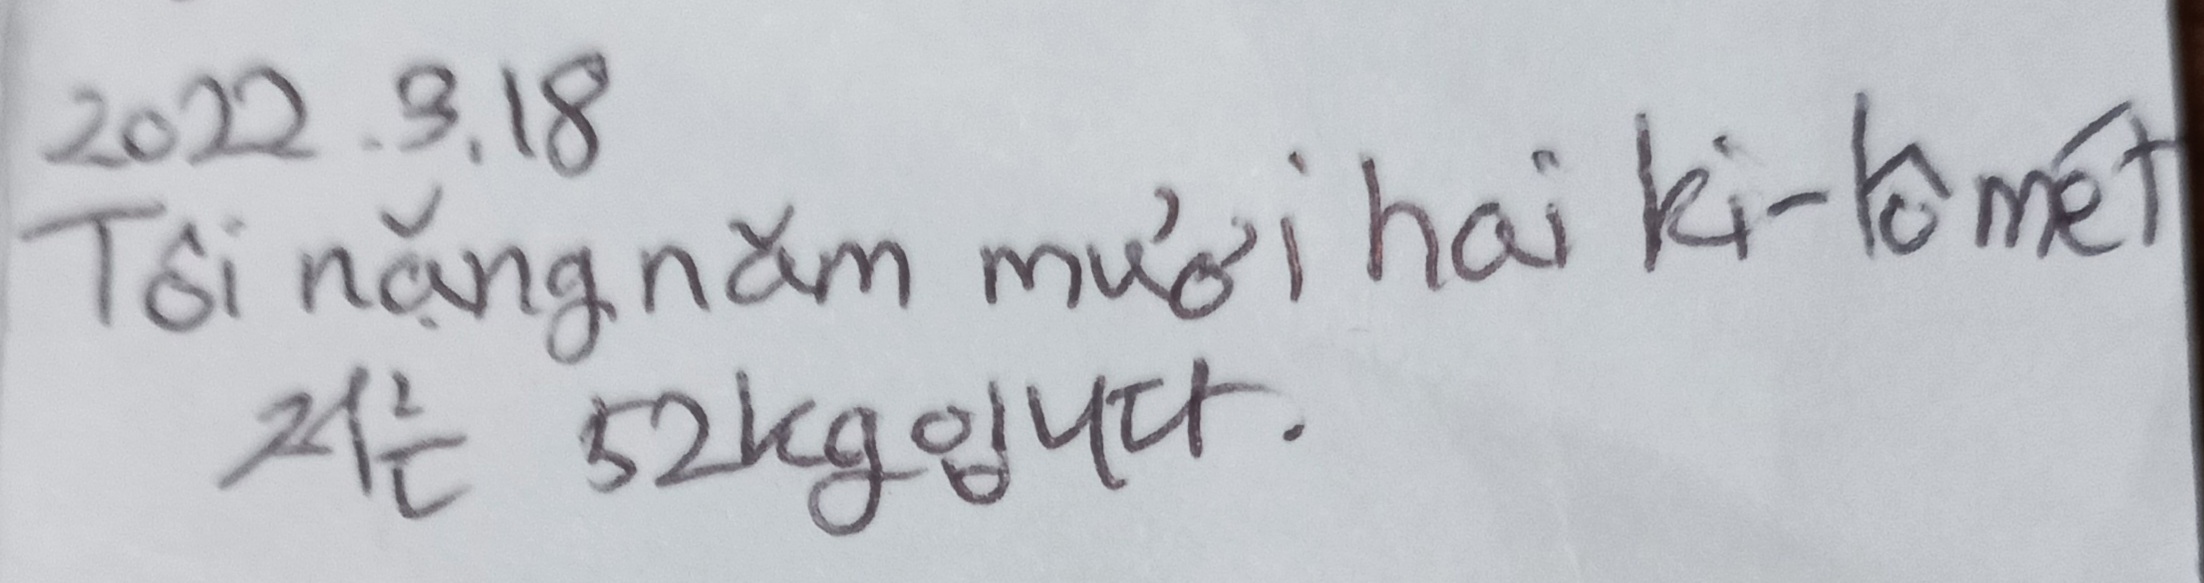 2022.3.18
Tôi nặng năm mươi hai ki-lô mét
저는 52kg입니다.